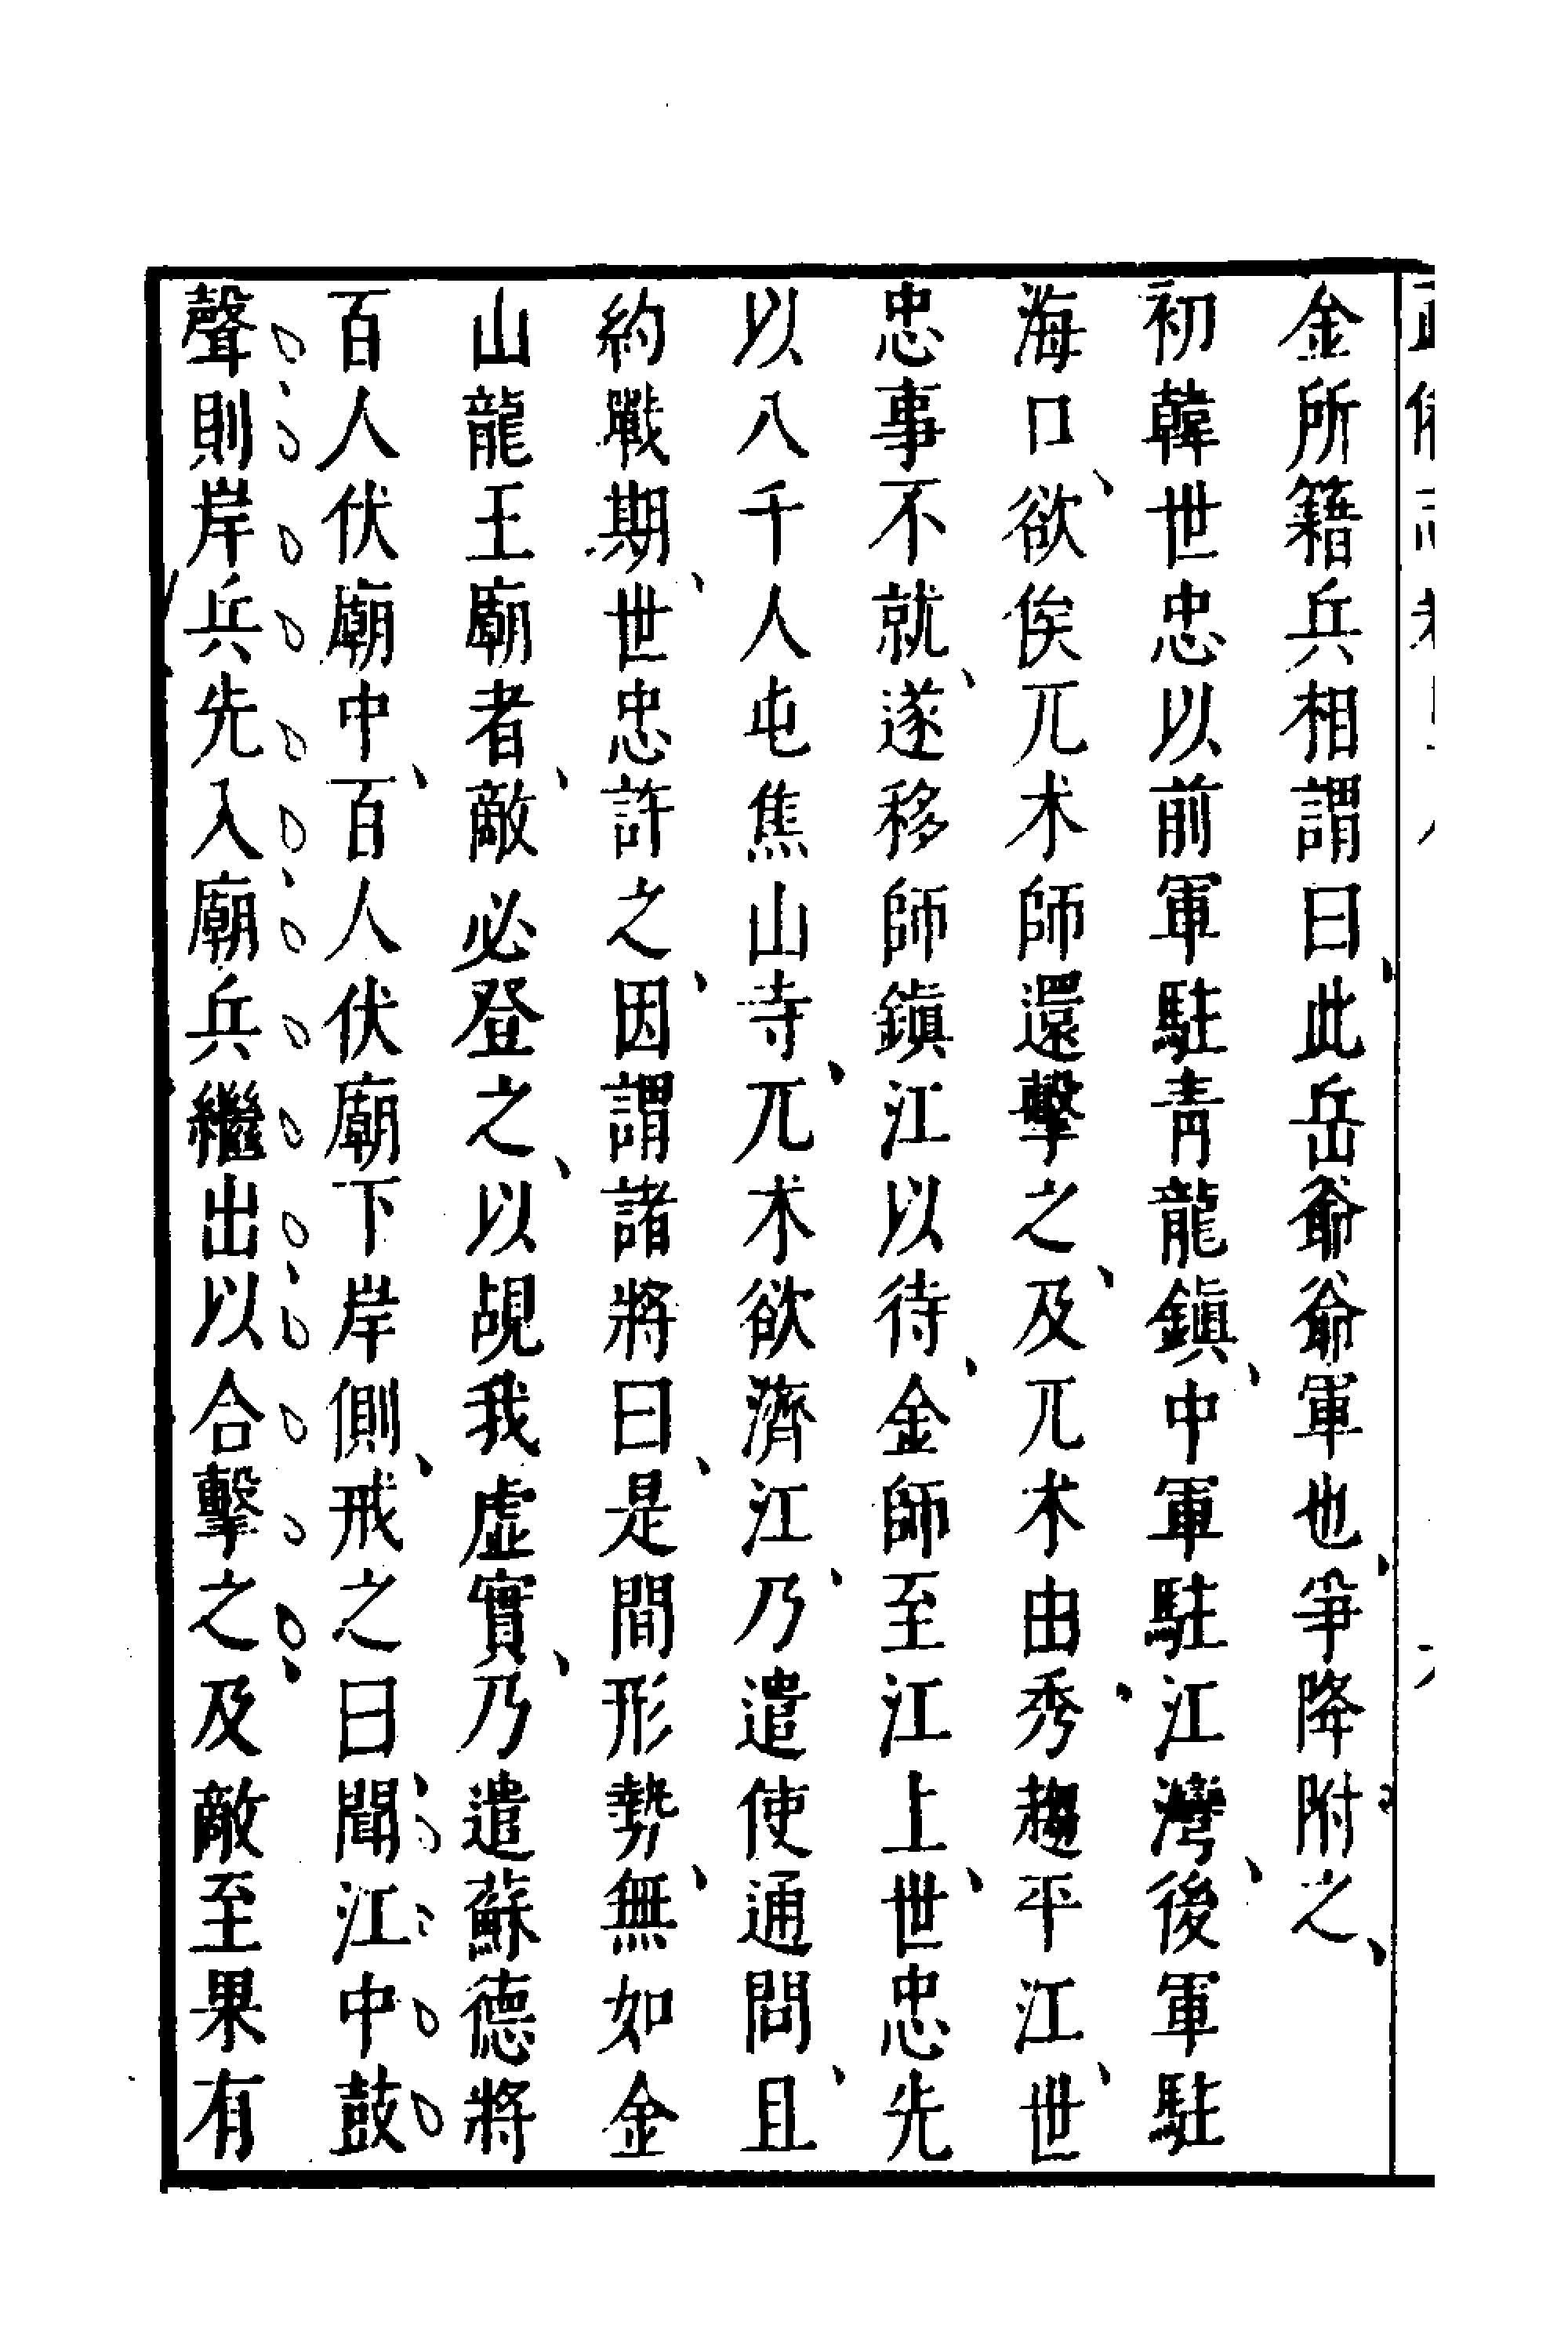 金所籍兵相謂曰此岳爺爺軍也爭降附之
初韓世忠以前軍駐青龍鎮中軍駐江灣後軍駐
海口欲俟兀术師還擊之及兀术由秀趨平江世
忠事不就遂移師鎮江以待金師至江上世忠先
以八千人屯焦山寺兀术欲濟江乃遣使通問且
約戰期世忠許之因謂諸將曰是間形勢無如金
山龍王廟者敵必登之以覘我虛實乃遣蘇德將
百人伏廟中百人伏廟下岸側戒之曰聞江中鼓
聲則岸兵先入廟兵繼出以合擊之及敵至果有